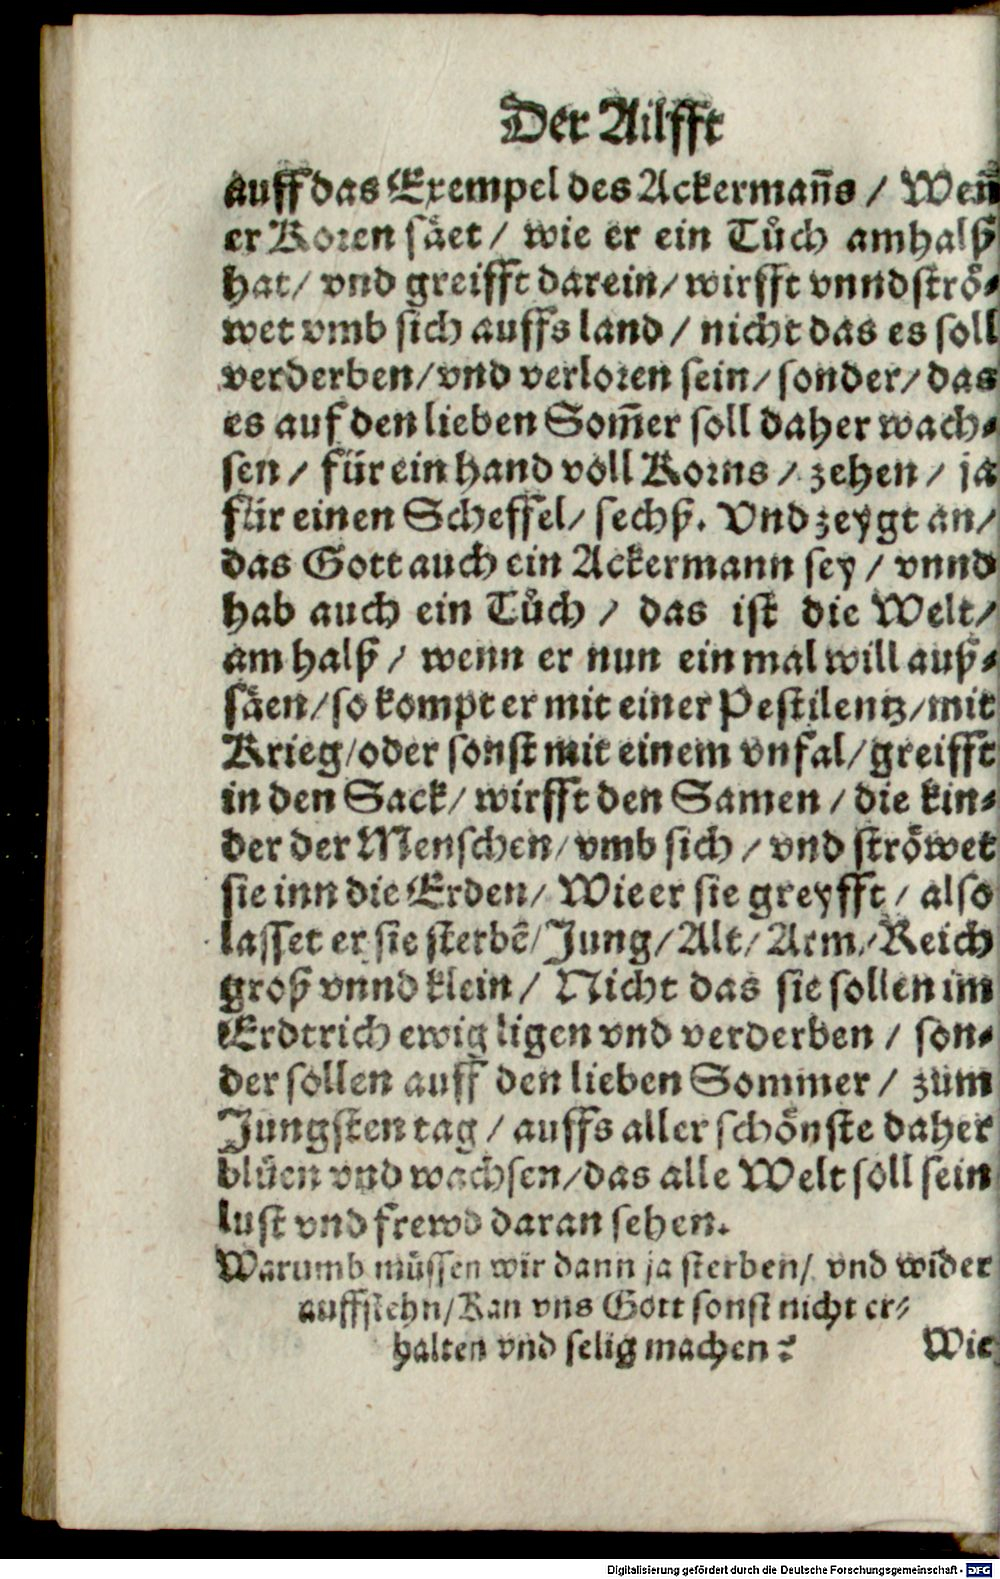 Der Ailfft
auff das Exempel des Ackermañs / Weñ
er Koren säet / wie er ein Tůch am halß
hat / vnd greifft darein / wirfft vnnd strö⸗
wet vmb sich auffs land / nicht das es soll
verderben / vnd verloren sein / sonder / das
es auf den lieben Som̄er soll daher wach⸗
sen / für ein hand voll Korns / zehen / ja
für einen Scheffel / sechß. Vnd zeygt an /
das Gott auch ein Ackermann sey / vnnd
hab auch ein Tůch / das ist die Welt /
am halß / wenn er nun ein mal will auß⸗
säen / so kompt er mit einer Pestilentz / mit
Krieg / oder sonst mit einem vnfal / greifft
in den Sack / wirfft den Samen / die kin⸗
der der Menschen / vmb sich / vnd ströwet
sie inn die Erden / Wie er sie greyfft / also
lasset er sie sterbē / Jung / Alt / Arm / Reich
groß vnnd klein / Nicht das sie sollen im
Erdtrich ewig ligen vnd verderben / son⸗
der sollen auff den lieben Sommer / zum
Jungsten tag / auffs aller schönste daher
blüen vnd wachsen / das alle Welt soll sein
lust vnd frewd daran sehen.
Warumb müssen wir dann ja sterben / vnd wider
auffstehn / Kan vns Gott sonst nicht er⸗
halten vnd selig machen?
Wie
Digitalisierung gefördert durch die Deutsche Forschungsgemeinschaft - DFG